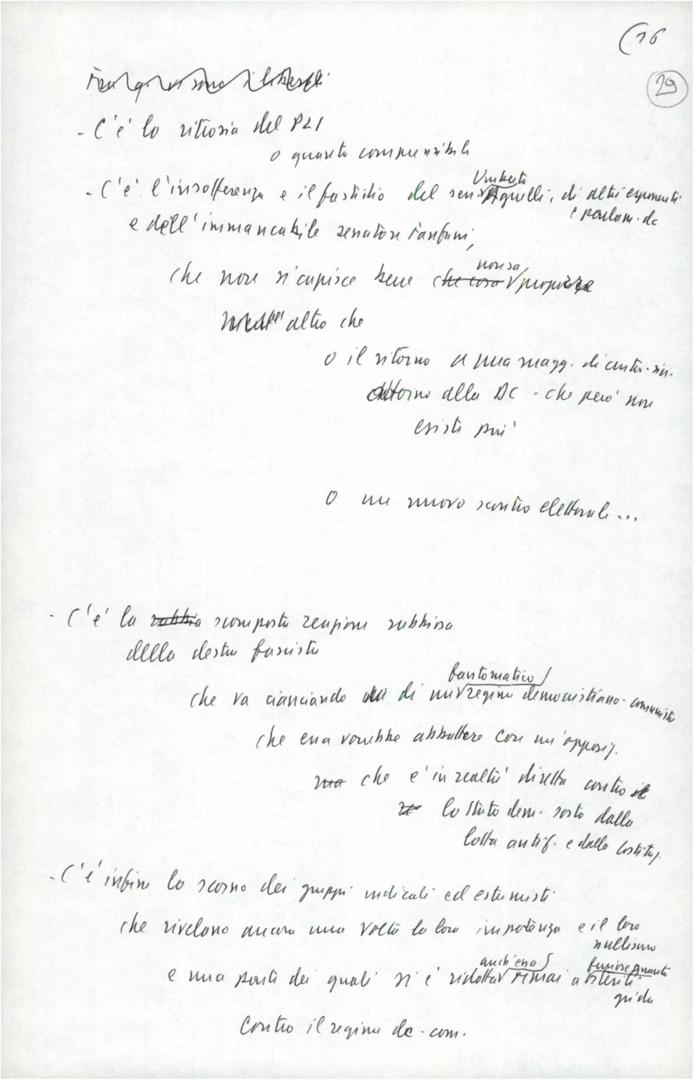 (16
29
- C'è la ritrosia del PLI
o quanto comprensibili
- C'è l'insofferenza e il fastidio del sen. Umberto Agnelli, di altri esponenti
e parlam. dc
e dell'immancabile senatore Fanfani,
che non si capisce bene che cosa non sa proporre
altro che
o il ritorno a una magg. di centro-sin.
attorno alla DC - che però non
esiste più
o un nuovo scontro elettorale...
- C'è la rabbia scomposta reazione rabbiosa
della destra fascista
che va cianciando di un fantomatico regime democristiano-comunista
che essa vorrebbe abbattere con un'opposiz.
ma che è in realtà diretta contro il
lo Stato dem. sorto dalla
lotta antif. e dalla Costituz.
- C'è infine lo scorno dei gruppi radicali ed estremisti
che rivelano ancora una volta la loro impotenza e il loro
nullismo
e una parte dei quali si è ridotta anch'essa ormai a steriti
grida
contro il regime dc-com.